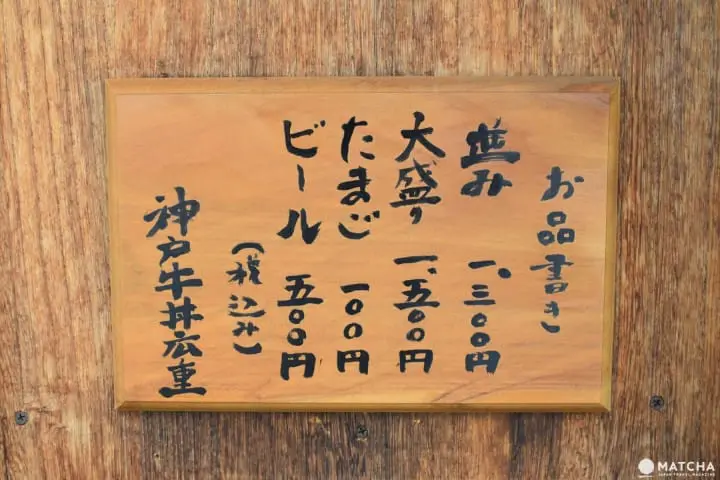 お品書き
並み 一、三〇〇円
大盛り 一、五〇〇円
たまご 一〇〇円
ビール 五〇〇円
(税込み)
神戸牛丼広重
MATCHA
JAPAN TRAVEL MAGAZINE